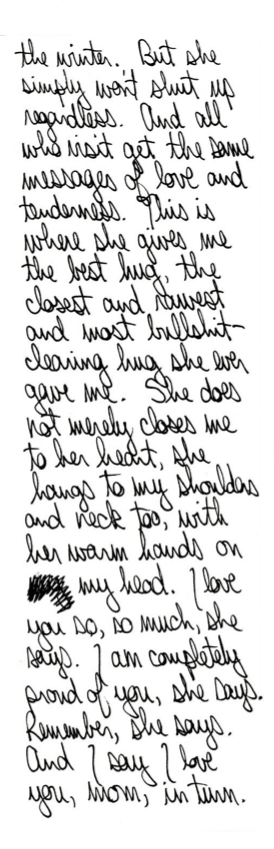 the winter. But she
simply won't shut up
regardless. And all
who visit get the same
messages of love and
tenderness. This is
where she gives me
the best hug, the
closest and rawest
and most bullshit-
clearing hug she ever
gave me. She does
not merely closes me
to her heart, she
hangs to my shoulders
and neck too, with
her warm hands on
my head. I love
you so, so much, she
says. I am completely
proud of you, she says.
Remember, she says.
And I say I love
you, mom, in turn.